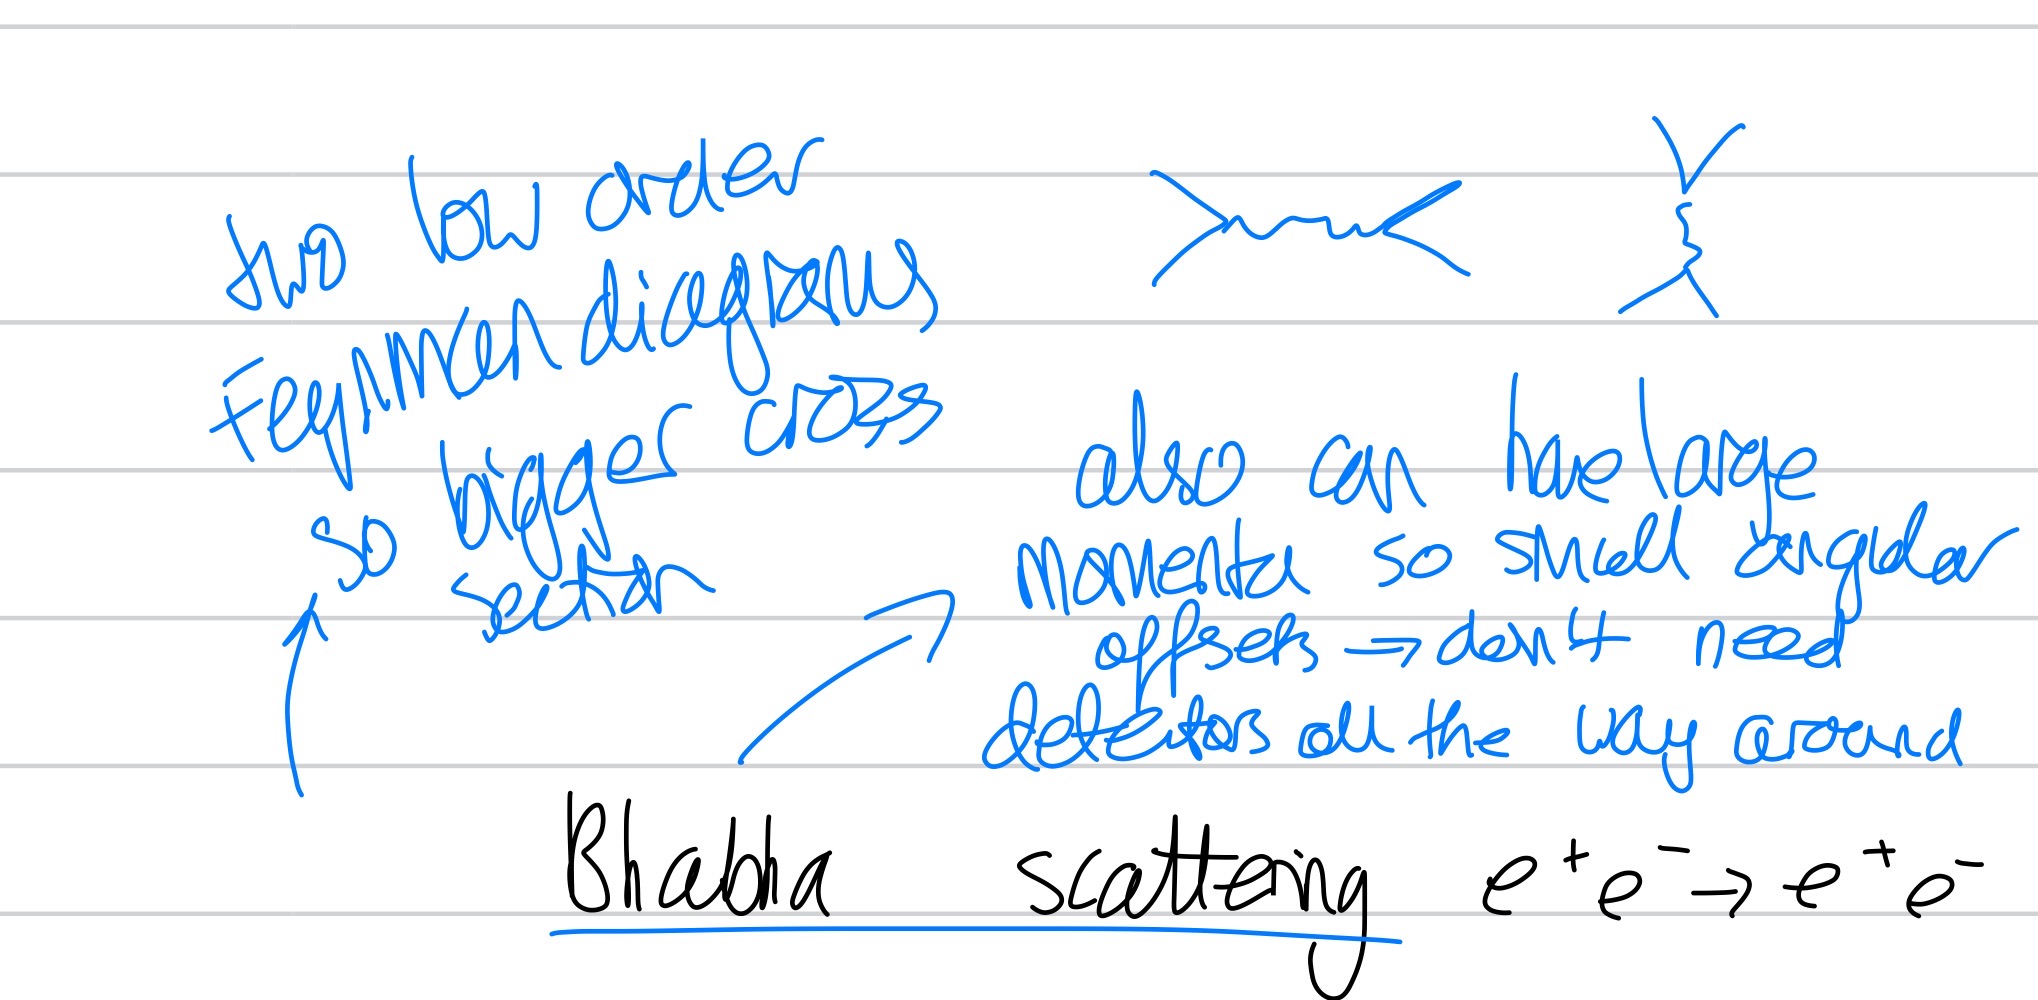 two low order
Feynman diagrams,
so bigger cross
section
also can have large
momenta so small angular
offsets → don't need
detectors all the way around
Bhabha scattering e⁺e⁻ → e⁺e⁻